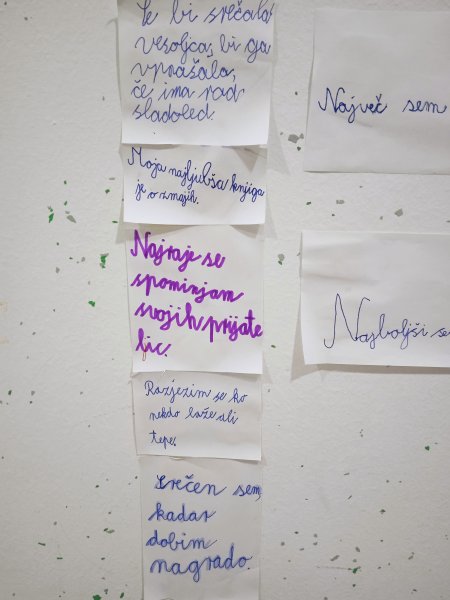 Če bi srečala
vesoljca, bi ga
vprašala,
če ima rad
sladoled.
Moja najljubša knjiga
je o zmajih.
Najraje se
spominjam
svojih prijate
ljic.
Razjezim se ko
nekdo laže ali
tepe.
Srečen sem,
kadar
dobim
nagrado.
Največ sem
Najboljši se